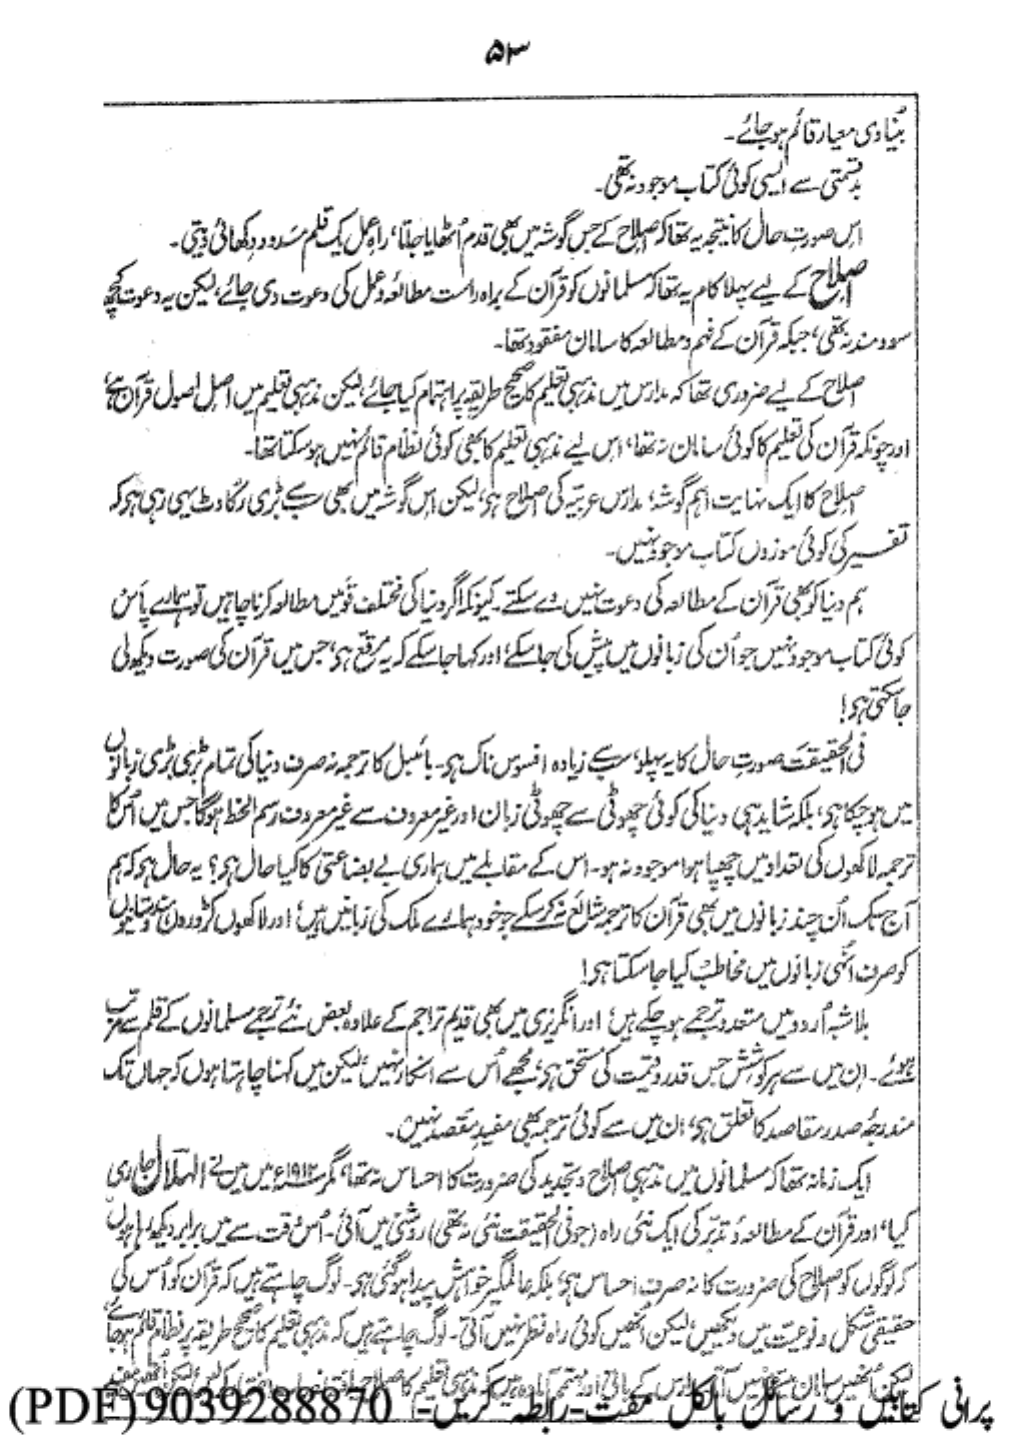 ۵۳
بُنیادی معیار قائم ہو جائے۔
بدقسمتی سے ایسی کوئی کتاب موجود نہ تھی۔
اِس صورتِ حال کا نتیجہ یہ تھا کہ اصلاح کے جس گوشہ میں بھی قدم اُٹھایا جاتا، راہِ عمل یک قلم مسدود دکھائی دیتی۔
اصلاح کے لیے پہلا کام یہ تھا کہ مسلمانوں کو قرآن کے براہ راست مطالعہ و عمل کی دعوت دی جائے، لیکن یہ دعوت کچھ
سودمند نہ تھی، جبکہ قرآن کے فہم و مطالعہ کا سامان مفقود تھا۔
اصلاح کے لیے ضروری تھا کہ مدارس میں مذہبی تعلیم کا صحیح طریقہ پر اہتمام کیا جائے، لیکن مذہبی تعلیم میں اصل اصول قرآن ہے،
اور چونکہ قرآن کی تعلیم کا کوئی سامان نہ تھا، اس لیے مذہبی تعلیم کا بھی کوئی نظام قائم نہیں ہو سکتا تھا۔
اصلاح کا ایک نہایت اہم گوشہ، مدارس عربیّہ کی اصلاح ہی، لیکن اِس گوشہ میں بھی سب سے بڑی رُکاوٹ یہی رہی ہی کہ
تفسیر کی کوئی موزوں کتاب موجود نہیں۔
ہم دنیا کو بھی قرآن کے مطالعہ کی دعوت نہیں دے سکتے۔ کیونکہ اگر دنیا کی مختلف قومیں مطالعہ کرنا چاہیں تو ہمارے پاس
کوئی کتاب موجود نہیں جو اُن کی زبانوں میں پیش کی جا سکے، اور کہا جا سکے کہ یہ مرقّع ہی، جس میں قرآن کی صورت دیکھ لی
جا سکتی ہی!
فی الحقیقت صورتِ حال کا یہ پہلو، سب سے زیادہ افسوس ناک ہی۔ بائبل کا ترجمہ نہ صرف دنیا کی تمام بڑی بڑی زبانوں
میں ہو چکا ہی، بلکہ شاید ہی دنیا کی کوئی چھوٹی سے چھوٹی زبان اور غیر معروف سے غیر معروف رسم الخط ہوگا جس میں اُس کا
ترجمہ لاکھوں کی تعداد میں چھپا ہوا موجود نہ ہو۔ اس کے مقابلے میں ہماری بے بضاعتی کا کیا حال ہی؟ یہ حال ہی کہ ہم
آج تک اُن چند زبانوں میں بھی قرآن کا ترجمہ شائع نہ کر سکے جو خود ہمارے ملک کی زبانیں ہیں، اور لاکھوں کروروں ہندوستانیوں
کو صرف اُنہی زبانوں میں مخاطب کیا جا سکتا ہی!
بلاشبہ اُردو میں متعدد ترجمے ہو چکے ہیں، اور انگریزی میں بھی قدیم تراجم کے علاوہ بعض نئے ترجمے مسلمانوں کے قلم سے مرتب
ہوئے۔ اِن میں سے ہر کوشش جس قدر و قیمت کی مستحق ہی، مجھے اُس سے انکار نہیں، لیکن میں کہنا چاہتا ہوں کہ جہاں تک
مندرجۂ صدر مقاصد کا تعلق ہی، ان میں سے کوئی ترجمہ بھی مفیدِ مقصد نہیں۔
ایک زمانہ تھا کہ مسلمانوں میں مذہبی اصلاح و تجدید کی ضرورت کا احساس نہ تھا، مگر ۱۹۱۲ء میں میں نے الہلال جاری
کیا، اور قرآن کے مطالعہ و تدبّر کی ایک نئی راہ (جو فی الحقیقت نئی نہ تھی) روشنی میں آئی۔ اُس وقت سے میں برابر دیکھ رہا ہوں
کہ لوگوں کو اصلاح کی ضرورت کا نہ صرف احساس ہی، بلکہ عالمگیر خواہش پیدا ہو گئی ہی۔ لوگ چاہتے ہیں کہ قرآن کو اُس کی
حقیقی شکل و نوعیت میں دیکھیں، لیکن انھیں کوئی راہ نظر نہیں آتی۔ لوگ چاہتے ہیں کہ مذہبی تعلیم کا صحیح طریقہ پر نظام قائم ہو جائے
لیکن اُنھیں سامان میسر نہیں آتا۔ مدارس کے بانی اور مہتمم آمادہ ہیں کہ مذہبی تعلیم کا
پرانی کتابیں و رسائل بالکل مفت۔ رابطہ کریں۔ 9039288870 (PDF)